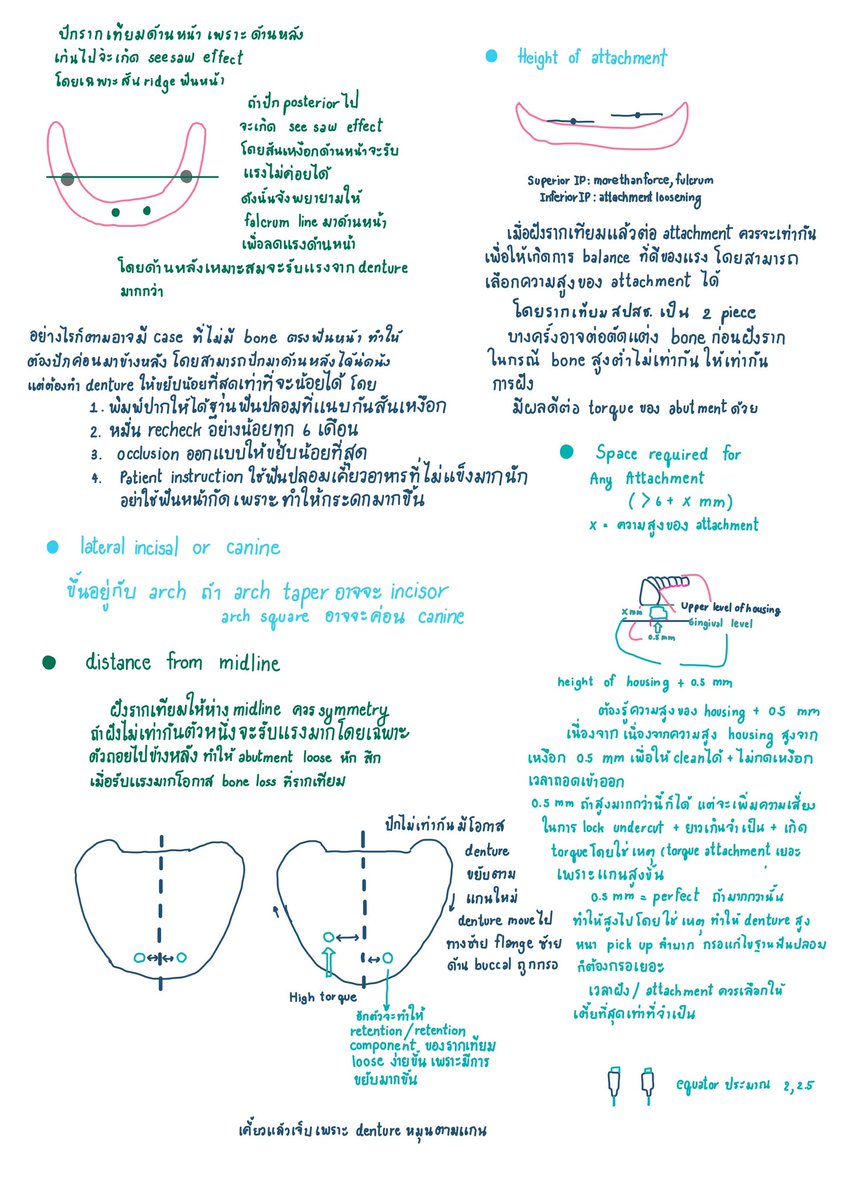 ปักรากเทียมด้านหน้า เพราะด้านหลัง
เกินไปจะเกิด seesaw effect
โดยเฉพาะสัน ridge ฟันหน้า
ถ้าปัก posterior ไป
จะเกิด see saw effect
โดยสันเหงือกด้านหน้าจะรับ
แรงไม่ค่อยได้
ดังนั้นจึงพยายามให้
falcrum line มาด้านหน้า
เพื่อลดแรงด้านหน้า
โดยด้านหลังเหมาะสมจะรับแรงจาก denture
มากกว่า
อย่างไรก็ตามอาจมี case ที่ไม่มี bone ตรงฟันหน้า ทำให้
ต้องปักค่อนมาข้างหลัง โดยสามารถปักมาด้านหลังได้นิดนึง
แต่ต้องทำ denture ให้ขยับน้อยที่สุดเท่าที่จะน้อยได้ โดย
1. พิมพ์ปากให้ได้ฐานฟันปลอมที่แนบกับสันเหงือก
2. หมั่น recheck อย่างน้อยทุก 6 เดือน
3. occlusion ออกแบบให้ขยับน้อยที่สุด
4. Patient instruction ใช้ฟันปลอมเคี้ยวอาหารที่ไม่แข็งมากนัก
อย่าใช้ฟันหน้ากัด เพราะทำให้กระดกมากขึ้น
lateral incisal or canine
ขึ้นอยู่กับ arch ถ้า arch taper อาจจะ incisor
arch square อาจจะค่อน canine
distance from midline
ฝังรากเทียมให้ห่าง midline ควร symmetry
ถ้าฝังไม่เท่ากันตัวหนึ่งจะรับแรงมากโดยเฉพาะ
ตัวถอยไปข้างหลัง ทำให้ abutment loose หัก สึก
เมื่อรับแรงมากโอกาส bone loss ที่รากเทียม
ปักไม่เท่ากัน มีโอกาส
denture
ขยับตาม
แกนใหม่
denture move ไป
ทางซ้าย flange ซ้าย
ด้าน buccal ถูกกรอ
High torque
อีกตัวจะทำให้
retention/retention
component ของรากเทียม
loose ง่ายขึ้น เพราะมีการ
ขยับมากขึ้น
เคี้ยวแล้วเจ็บ เพราะ denture หมุนตามแกน
Height of attachment
Superior IP: more than force, fulcrum
Inferior IP: attachment loosening
เมื่อฝังรากเทียมแล้วต่อ attachment ควรจะเท่ากัน
เพื่อให้เกิดการ balance ที่ดีของแรง โดยสามารถ
เลือกความสูงของ attachment ได้
โดยรากเทียม สปสช. เป็น 2 piece
บางครั้งอาจต่อตัดแต่ง bone ก่อนฝังราก
ในกรณี bone สูงต่ำไม่เท่ากัน ให้เท่ากัน
การฝัง
มีผลดีต่อ torque ของ abutment ด้วย
Space required for
Any Attachment
( > 6 + X mm)
X = ความสูงของ attachment
X mm
Upper level of housing
Gingival level
0.5 mm
height of housing + 0.5 mm
ต้องรู้ความสูงของ housing + 0.5 mm
เนื่องจาก เนื่องจากความสูง housing สูงจาก
เหงือก 0.5 mm เพื่อให้ clean ได้ + ไม่กดเหงือก
เวลาถอดเข้าออก
0.5 mm ถ้าสูงมากกว่านี้ก็ได้ แต่จะเพิ่มความเสี่ยง
ในการ lock undercut + ยาวเกินจำเป็น + เกิด
torque โดยใช่เหตุ (torque attachment เยอะ
เพราะแกนสูงขึ้น
0.5 mm = perfect ถ้ามากกว่านั้น
ทำให้สูงไปโดยใช่เหตุ ทำให้ denture สูง
หนา pick up ลำบาก กรอแก้ไขฐานฟันปลอม
ก็ต้องกรอเยอะ
เวลาฝัง / attachment ควรเลือกให้
เตี้ยที่สุดเท่าที่จำเป็น
equator ประมาณ 2, 2.5